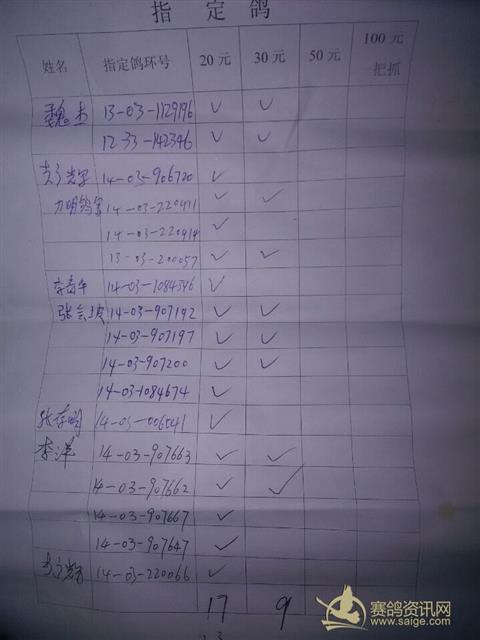 指定鸽
姓名 指定鸽环号 20元 30元 50元 100元一把抓
魏杰 13-03-1129196 ✓ ✓
12-33-142346 ✓ ✓
14-03-906720 ✓
14-03-220411 ✓ ✓
14-03-220414 ✓
13-03-200057 ✓ ✓
14-03-1084546 ✓
14-03-907192 ✓ ✓
14-03-907197 ✓ ✓
14-03-907200 ✓ ✓
14-03-1084674 ✓
14-03-006041 ✓
李洋 14-03-907663 ✓ ✓
14-03-907662 ✓ ✓
14-03-907667 ✓
14-03-907647 ✓
14-03-220066 ✓
17 9
赛鸽资讯网
www.saige.com